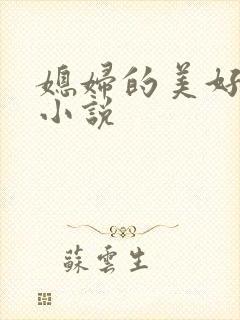 媳婦的美好
小說
蘇雲生